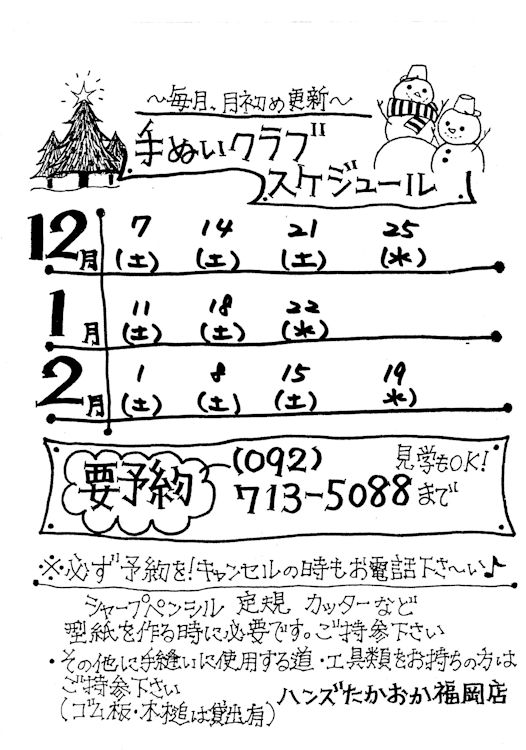 ～毎月、月初め更新～
手ぬいクラブ
スケジュール
12月 7(土) 14(土) 21(土) 25(水)
1月 11(土) 18(土) 22(水)
2月 1(土) 8(土) 15(土) 19(水)
要予約 (092) 見学もOK!
713-5088まで
※必ず予約を!キャンセルの時もお電話下さ～い♪
シャープペンシル 定規 カッターなど
型紙を作る時に必要です。ご持参下さい
・その他に手縫いに使用する道・工具類をお持ちの方は
ご持参下さい
(ゴム板・木槌は貸出有) ハンズたかおか福岡店